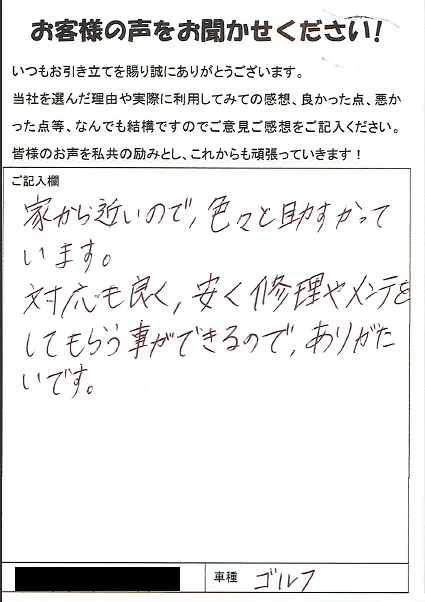 お客様の声をお聞かせください！
いつもお引き立てを賜り誠にありがとうございます。
当社を選んだ理由や実際に利用してみての感想、良かった点、悪か
った点等、なんでも結構ですのでご意見ご感想をご記入ください。
皆様のお声を私共の励みとし、これからも頑張っていきます！
ご記入欄
家から近いので、色々と助すかって
います。
対応も良く、安く修理やメンテを
してもらう事ができるので、ありがた
いです。
車種 ゴルフ